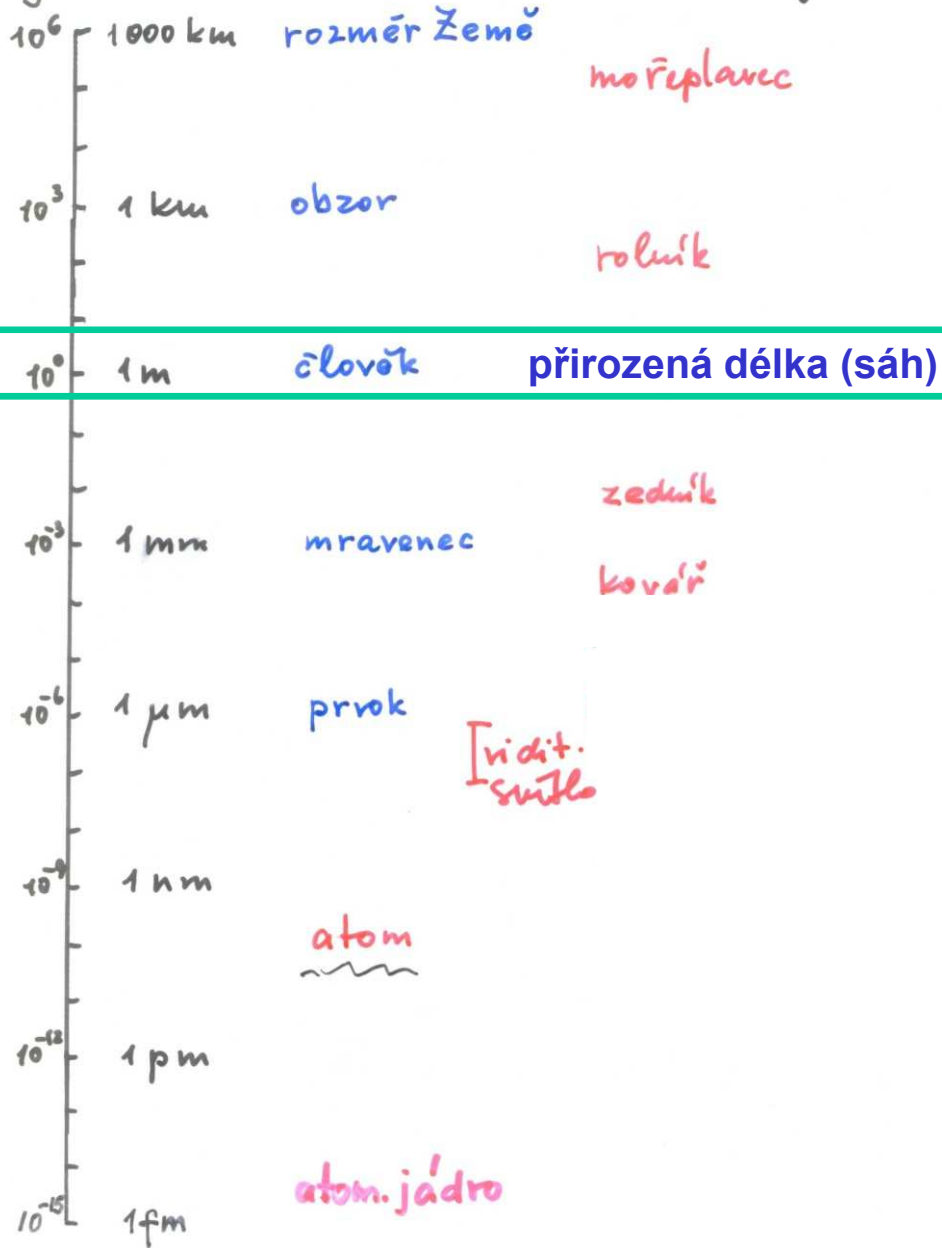 10⁶ 1000 km rozměr Země
mořeplavec
10³ 1 km obzor
rolník
10⁰ 1 m člověk přirozená délka (sáh)
zedník
10⁻³ 1 mm mravenec
kovář
10⁻⁶ 1 μm prvok
[vidit.
světlo
10⁻⁹ 1 nm
atom
10⁻¹² 1 pm
atom. jádro
10⁻¹⁵ 1 fm